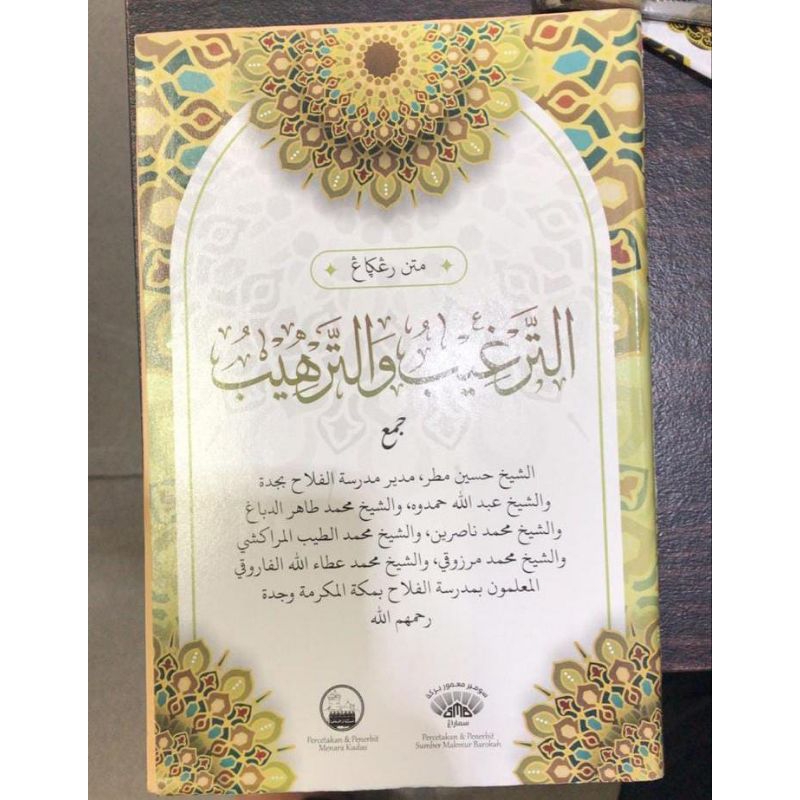 متن رڠكاڠ
الترغيب والترهيب
جمع
الشيخ حسين مطر، مدير مدرسة الفلاح بجدة
والشيخ عبد الله حمدوه، والشيخ محمد طاهر الدباغ
والشيخ محمد ناصرين، والشيخ محمد الطيب المراكشي
والشيخ محمد مرزوقي، والشيخ محمد عطاء الله الفاروقي
المعلمون بمدرسة الفلاح بمكة المكرمة وجدة
رحمهم الله
سومبر معمور بركة
SMB
سماراڠ
Percetakan & Penerbit
Menara Kudus
Percetakan & Penerbit
Sumber Makmur Barokah